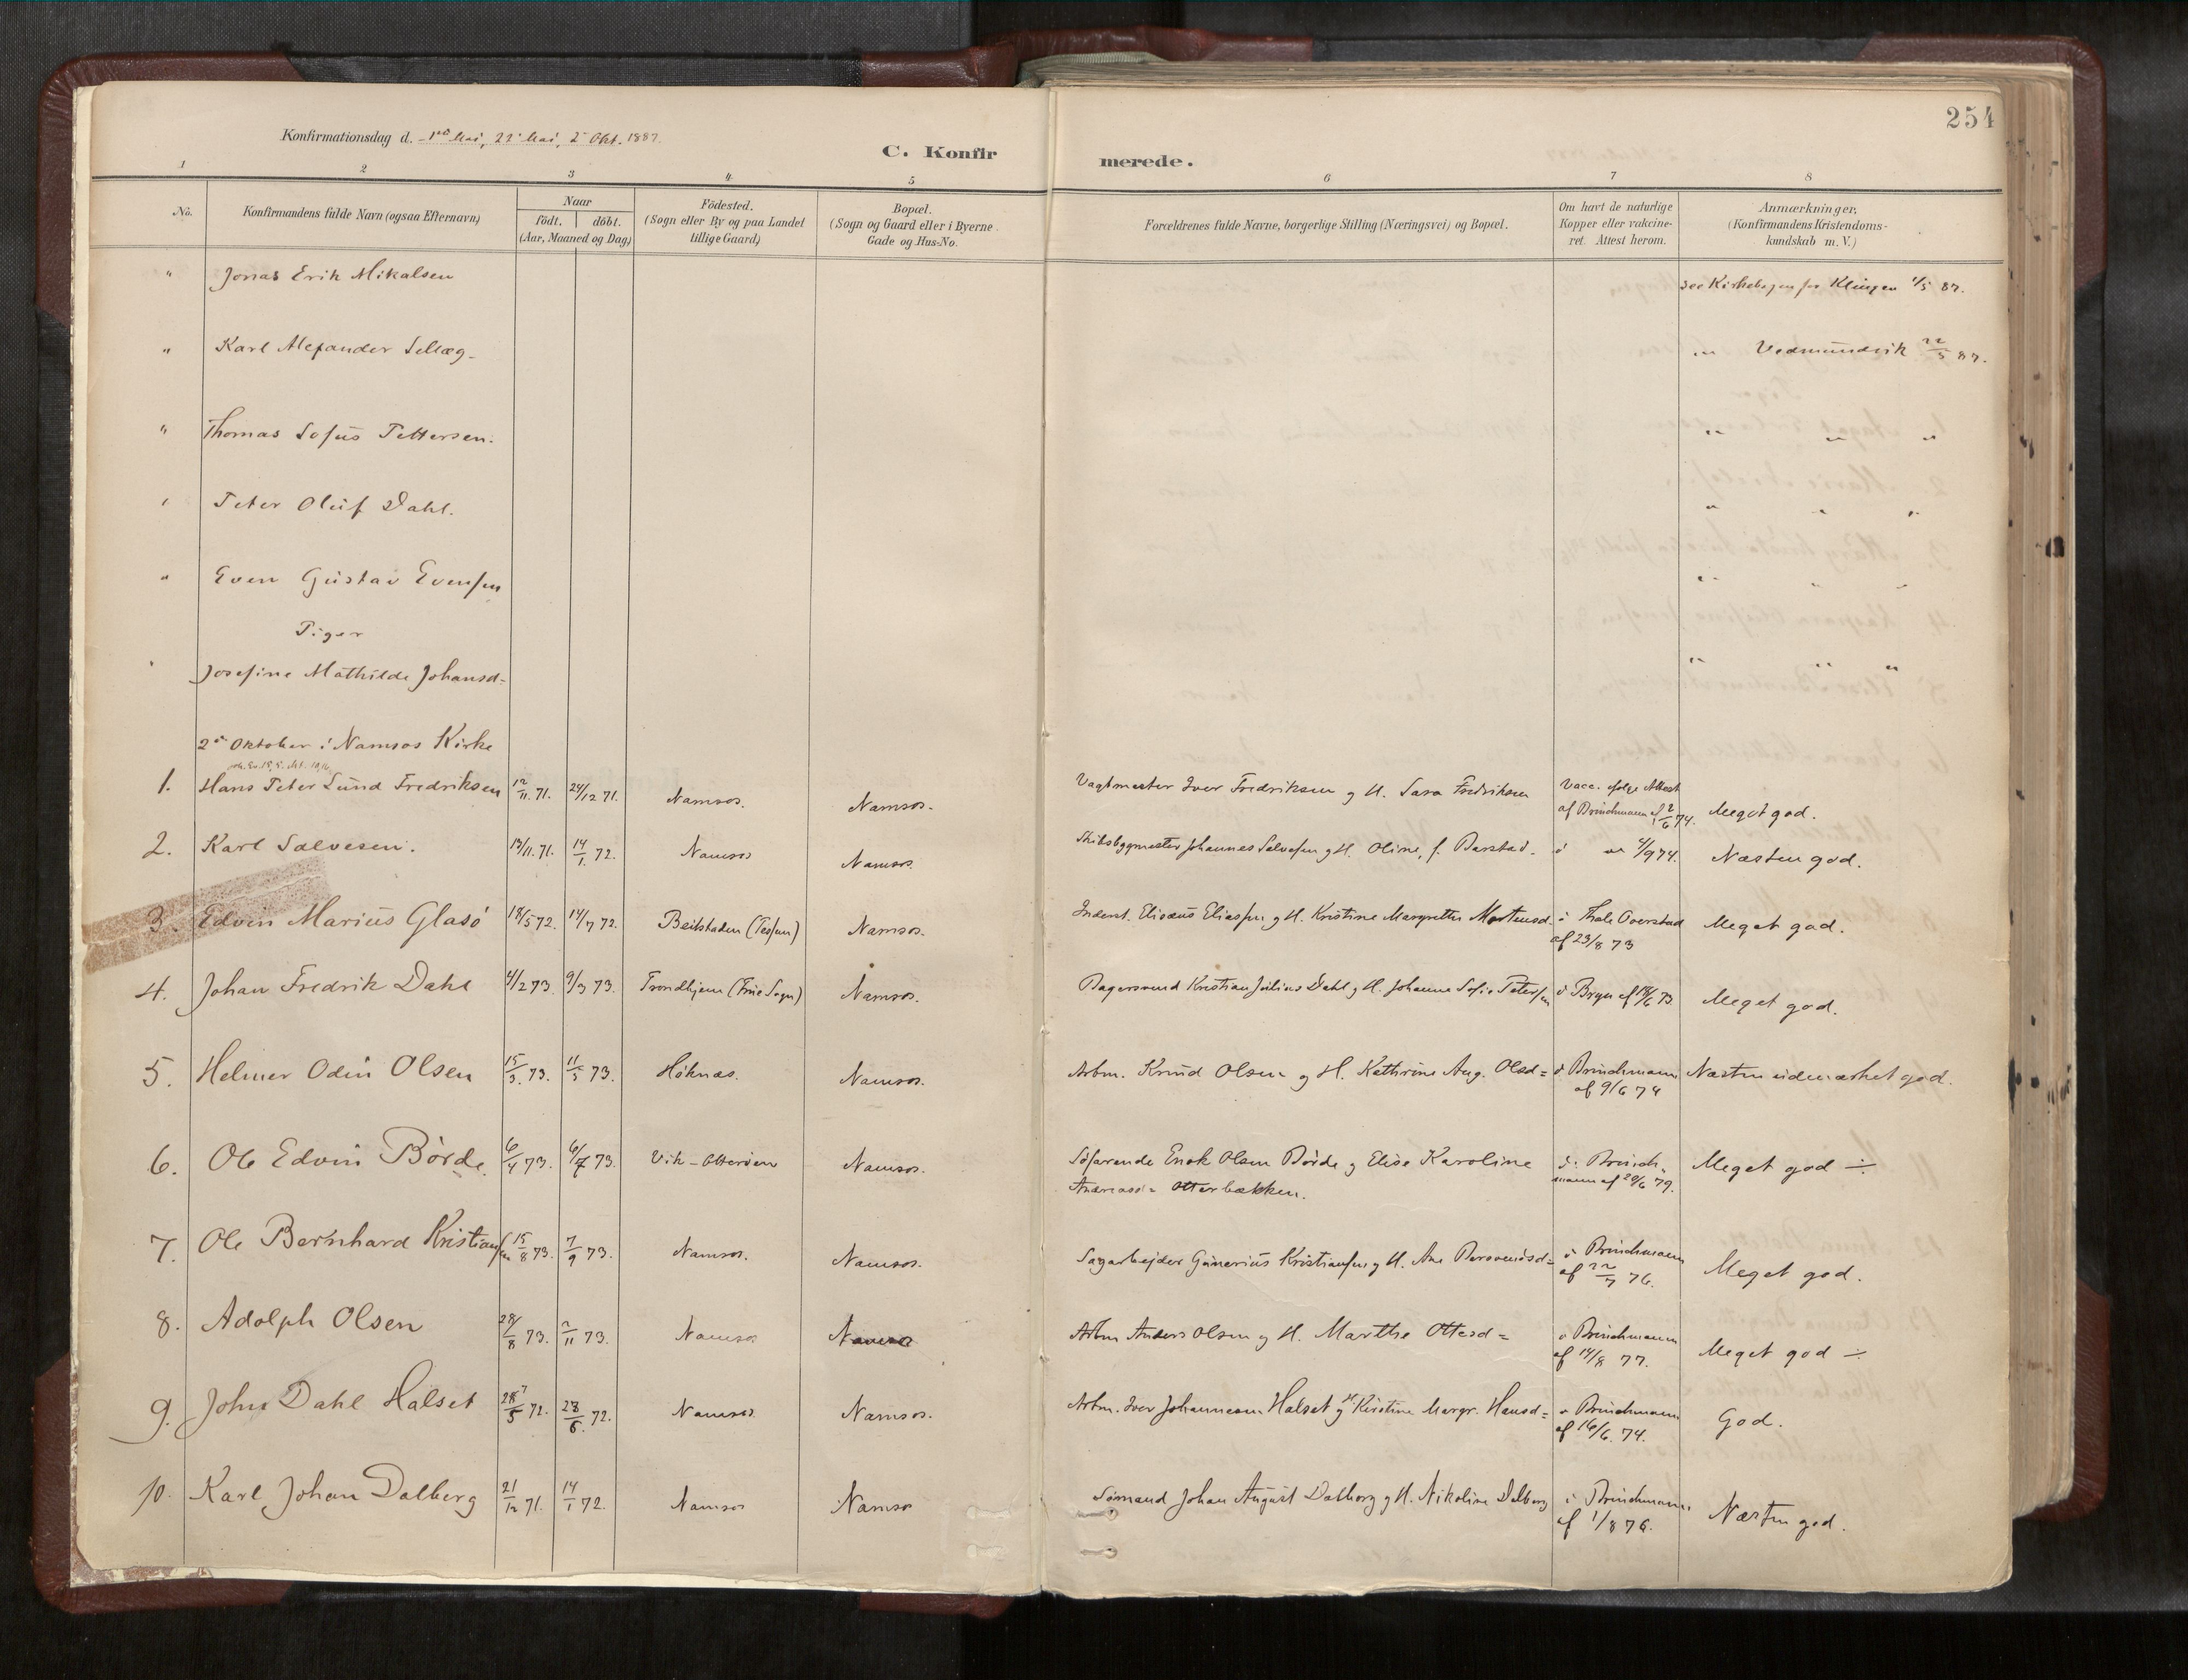 254
Konfirmationsdag d. 1ste Mai, 22 Mai, 2 Okt. 1887.
C. Konfirmerede.
1 2 3 4 5 6 7 8
No.
Konfirmandens fulde Navn (ogsaa Efternavn)
Naar
födt. döbt.
(Aar, Maaned og Dag)
Födested.
(Sogn eller By og paa Landet
tillige Gaard)
Bopæl.
(Sogn og Gaard eller i Byerne
Gade og Hus-No.
Forældrenes fulde Navne, borgerlige Stilling (Næringsvei) og Bopæl.
Om havt de naturlige
Kopper eller vakcine-
ret. Attest herom.
Anmærkninger.
(Konfirmandens Kristendoms-
kundskab m. V.)
" Jonas Erik Mikalsen see Kirkebogen for Klingen 1/5 87.
" Karl Alexander Sellæg- " Vedmundvik 22/5 87.
" Thomas Sofus Pettersen. " " "
" Peter Oluf Dahl. " " "
" Even Gustav Evensen " " "
Piger
" Josefine Mathilde Johansd= " " "
2 Oktober i Namsos Kirke
1. Hans Peter Lund Fredriksen 12/11. 71. 24/12 71. Namsos. Namsos. Vagtmester Iver Fredriksen og H. Sara Fredriksen Vacc. ifølge Attest
af Brinchmann af 2/6 74. Meget god.
2. Karl Salvesen. 13/11. 71. 14/1. 72. Namsos Namsos. Skibsbygmester Johannes Salvesen og H. Oline, f. Barstad. " " 4/9 74. Næsten god.
3. Edvin Marius Glasö 18/5 72. 14/7 72. Beitstaden Namsos. Inderst. Elisæus Eliassen og H. Kristine Margrethe Mortensd. " Thale Overstad
af 23/8 73 Meget god.
4. Johan Fredrik Dahl 4/2 73. 9/3 73. Trondhjem (Frue Sogn) Namsos. Bagersvend Kristian Julius Dahl og H. Johanne Sofie Petersen " Bryn af 18/6 73 Meget god.
5. Helmer Odin Olsen 15/3. 73. 11/5 73. Høknæs. Namsos. Arbm. Knud Olsen og H. Kathrine Aug. Olsd= " Brinchmann
af 9/6 74 Næsten udmærket god.
6. Ole Edvin Børde. 6/4 73. 6/7 73. Vik-Otterøen Namsos. Söfarende Enok Olsen Börde og Elise Karoline
Andreasd= Otterbækken. " Brinch-
mann af 20/6 79. Meget god ÷
7. Ole Bernhard Kristiansen 15/8 73. 7/9 73. Namsos. Namsos. Sagarbejder Gunerius Kristiansen og H. Ane " Brinchmann
af 22/7 76. Meget god.
8. Adolph Olsen 28/8 73. 2/11 73. Namsos Namsos Arbm Anders Olsen og H. Marthe Ottesd= " Brinchmann
af 14/8 77. Meget god ÷
9. John Dahl Halset 28/5 72. 23/6. 72. Namsos. Namsos. Arbm. Iver Johannesen Halset og H. Kirstine Margr. Hansd= " Brinchmann
af 16/6. 74. God.
10. Karl Johan Dalberg 21/12 71. 14/1 72. Namsos Namsos Sömand Johan August Dalberg og H. Nikoline Dalberg " Brinchmann.
af 1/8 76. Næsten god.